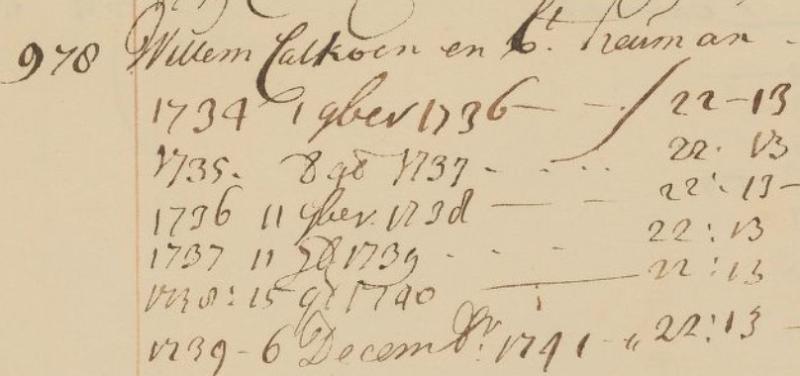 978 Willem Calkoen en Ct. heuman -
1734 1 9ber 1736 - - 22-13
1735. 8 98 1737 - . . . 22. 13
1736 11 9ber. 1738 - - - 22: 13-
1737 11 1739 - - - 22: 13
1738: 15 1740 22: 13
1739 - 6 Decembr. 1741 - " 22:13 -